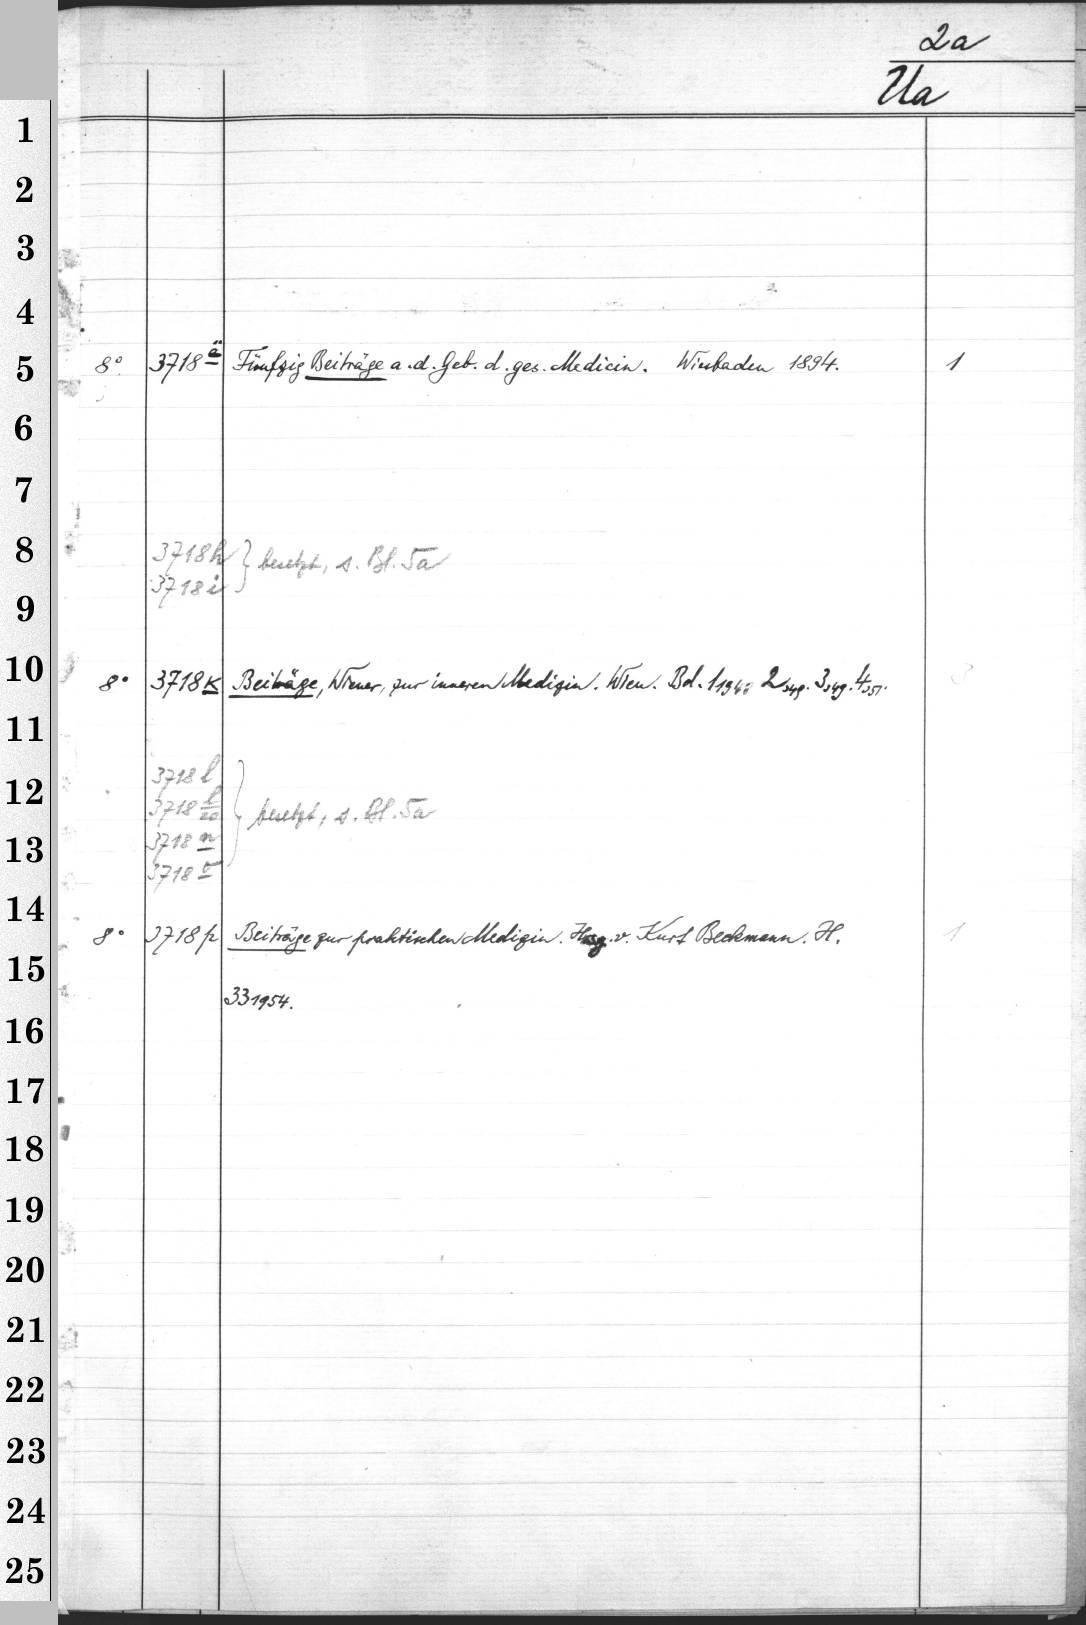 2a
Ua
1
2
3
4
5 8° 3718 ä Fünfzig Beiträge a. d. Geb. d. ges. Medicin. Wiesbaden 1894. 1
6
7
8 3718h } besetzt, s. Bl. 5a
3718i
9
10 8° 3718k Beiträge, Wiener, zur inneren Medizin. Wien. Bd. 1 1948 2 1949. 3 1949. 4 1951. 3
11
3718 l
12 3718 l/20 } besetzt, s. Bl. 5a
13 3718 n
3718 o
14 8° 3718p Beiträge zur praktischen Medizin. Hrsg. v. Kurt Beckmann. H. 1
15
33 1954.
16
17
18
19
20
21
22
23
24
25